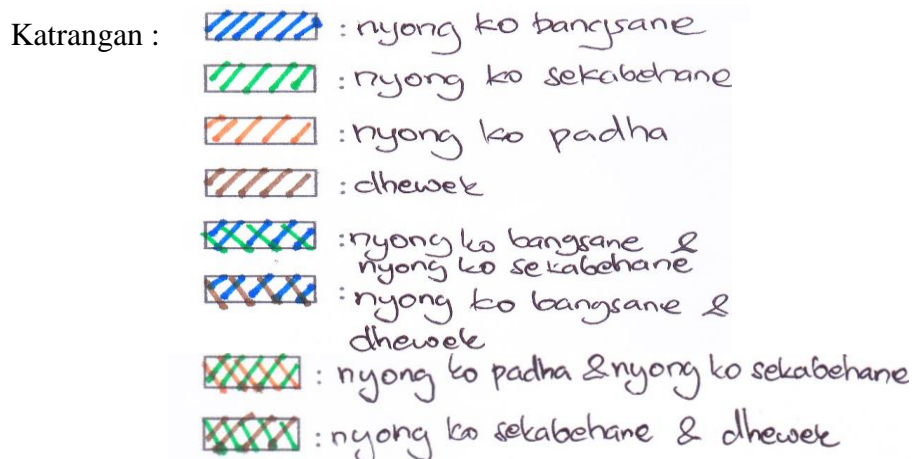 Katrangan :
: nyong ko bangsane
: nyong ko sekabehane
: nyong ko padha
: dhewek
: nyong ko bangsane &
nyong ko sekabehane
: nyong ko bangsane &
dhewek
: nyong ko padha & nyong ko sekabehane
: nyong ko sekabehane & dhewek